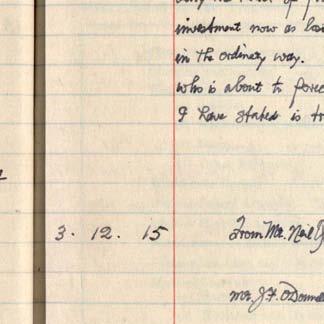 investment now as
in the ordinary way.
who is about to
I have stated is
3. 12. 15 From Mr. Neil
Mr. J. F. O'Donnell